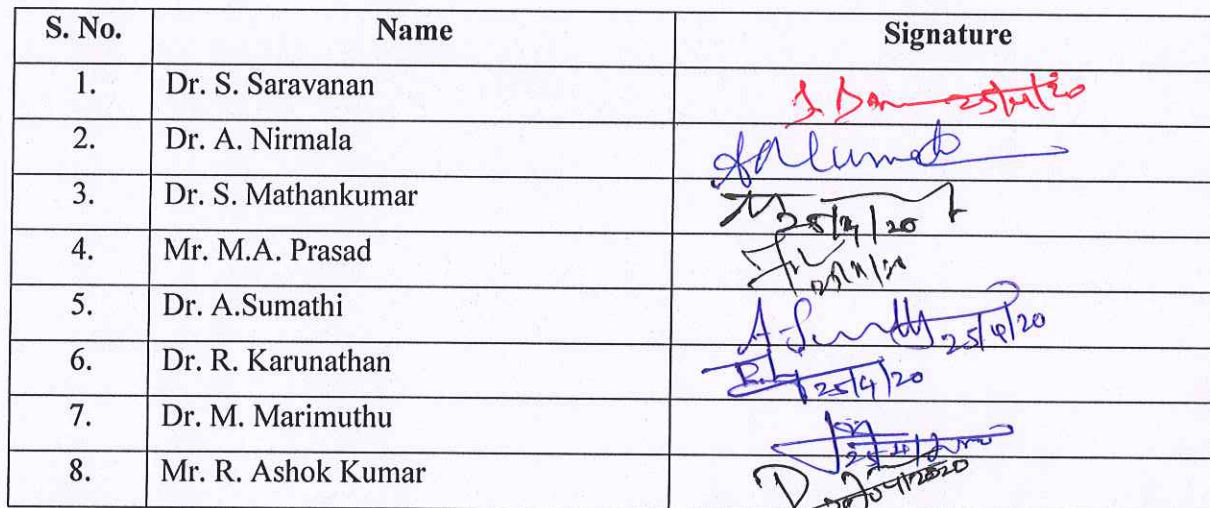 S. No. Name Signature
1. Dr. S. Saravanan 25/4/20
2. Dr. A. Nirmala
3. Dr. S. Mathankumar 25/4/20
4. Mr. M.A. Prasad
5. Dr. A.Sumathi 25/4/20
6. Dr. R. Karunathan 25/4/20
7. Dr. M. Marimuthu
8. Mr. R. Ashok Kumar